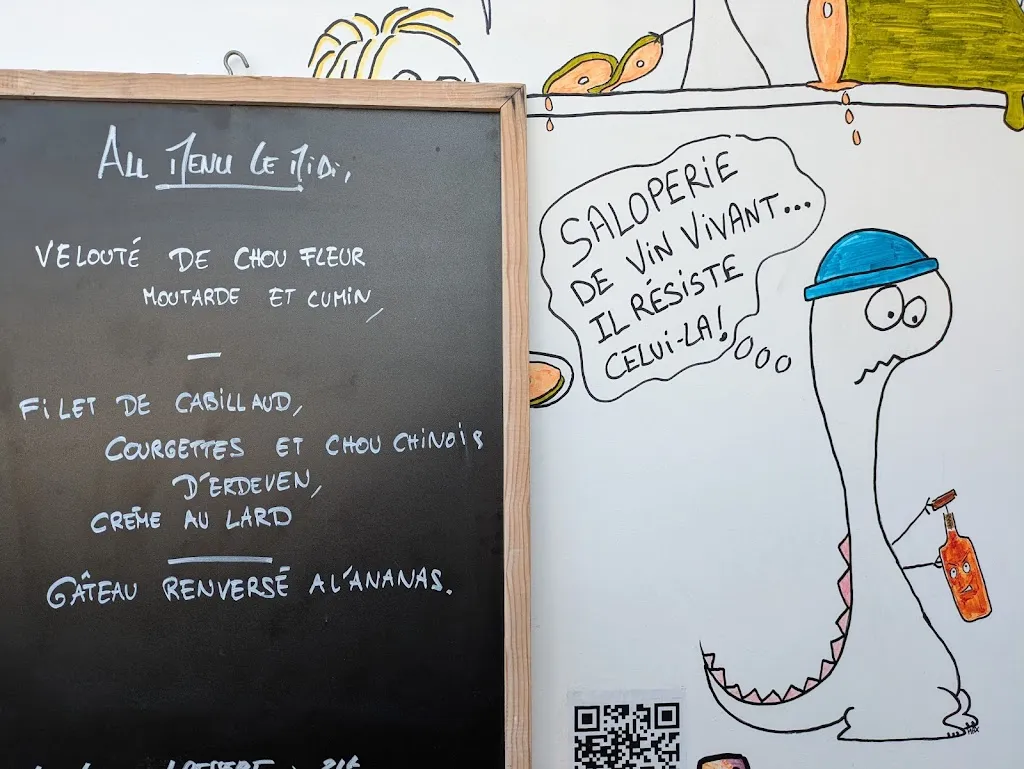 AU MENU LE MIDI,
VELOUTÉ DE CHOU FLEUR
MOUTARDE ET CUMIN,
FILET DE CABILLAUD,
COURGETTES ET CHOU CHINOIS
D'ERDEVEN,
CREME AU LARD
GÂTEAU RENVERSÉ A L'ANANAS.
SALOPERIE
DE VIN VIVANT...
IL RÉSISTE
CELUI-LA!